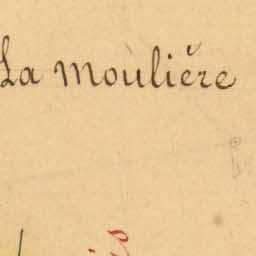 La Moulière